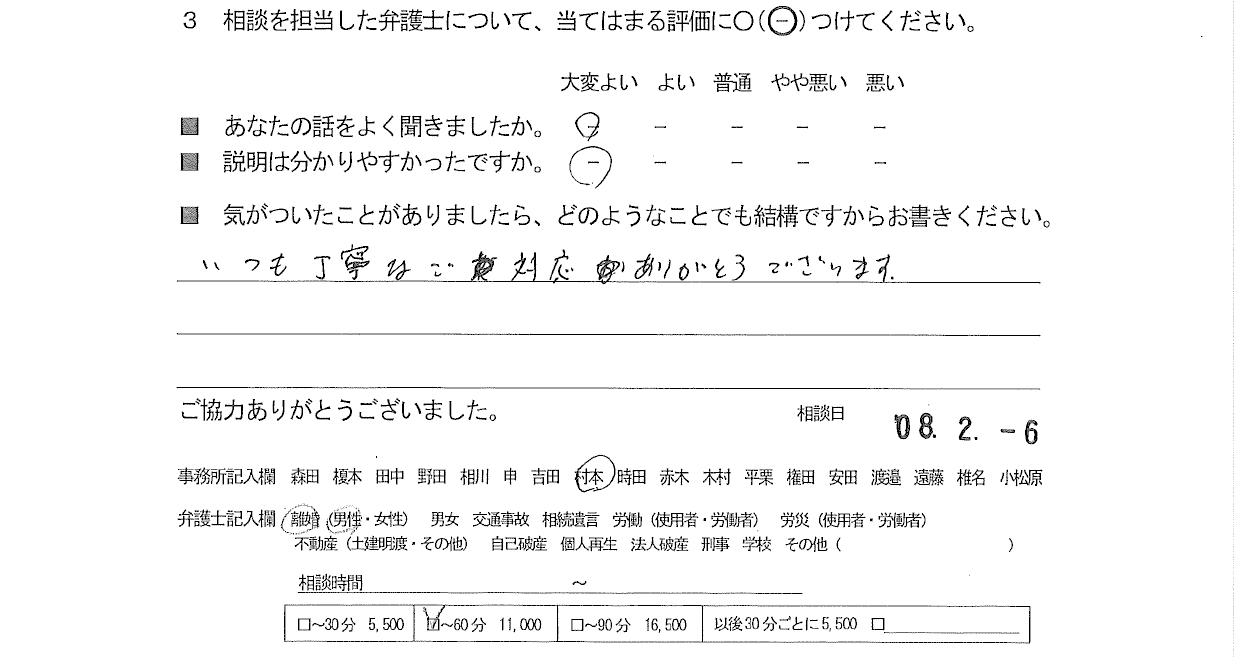 3 相談を担当した弁護士について、当てはまる評価に○(㊀)つけてください。
大変よい よい 普通 やや悪い 悪い
■ あなたの話をよく聞きましたか。 − − − − −
■ 説明は分かりやすかったですか。 − − − − −
■ 気がついたことがありましたら、どのようなことでも結構ですからお書きください。
いつも丁寧なご対応ありがとうございます。
ご協力ありがとうございました。 相談日 '08. 2. -6
事務所記入欄 森田 榎本 田中 野田 相川 申 吉田 村本 時田 赤木 木村 平栗 権田 安田 渡邉 遠藤 椎名 小松原
弁護士記入欄 離婚(男性・女性) 男女 交通事故 相続遺言 労働(使用者・労働者) 労災(使用者・労働者)
不動産(土建明渡・その他) 自己破産 個人再生 法人破産 刑事 学校 その他( )
相談時間 〜
□〜30分 5,500 ☑〜60分 11,000 □〜90分 16,500 以後30分ごとに5,500 □